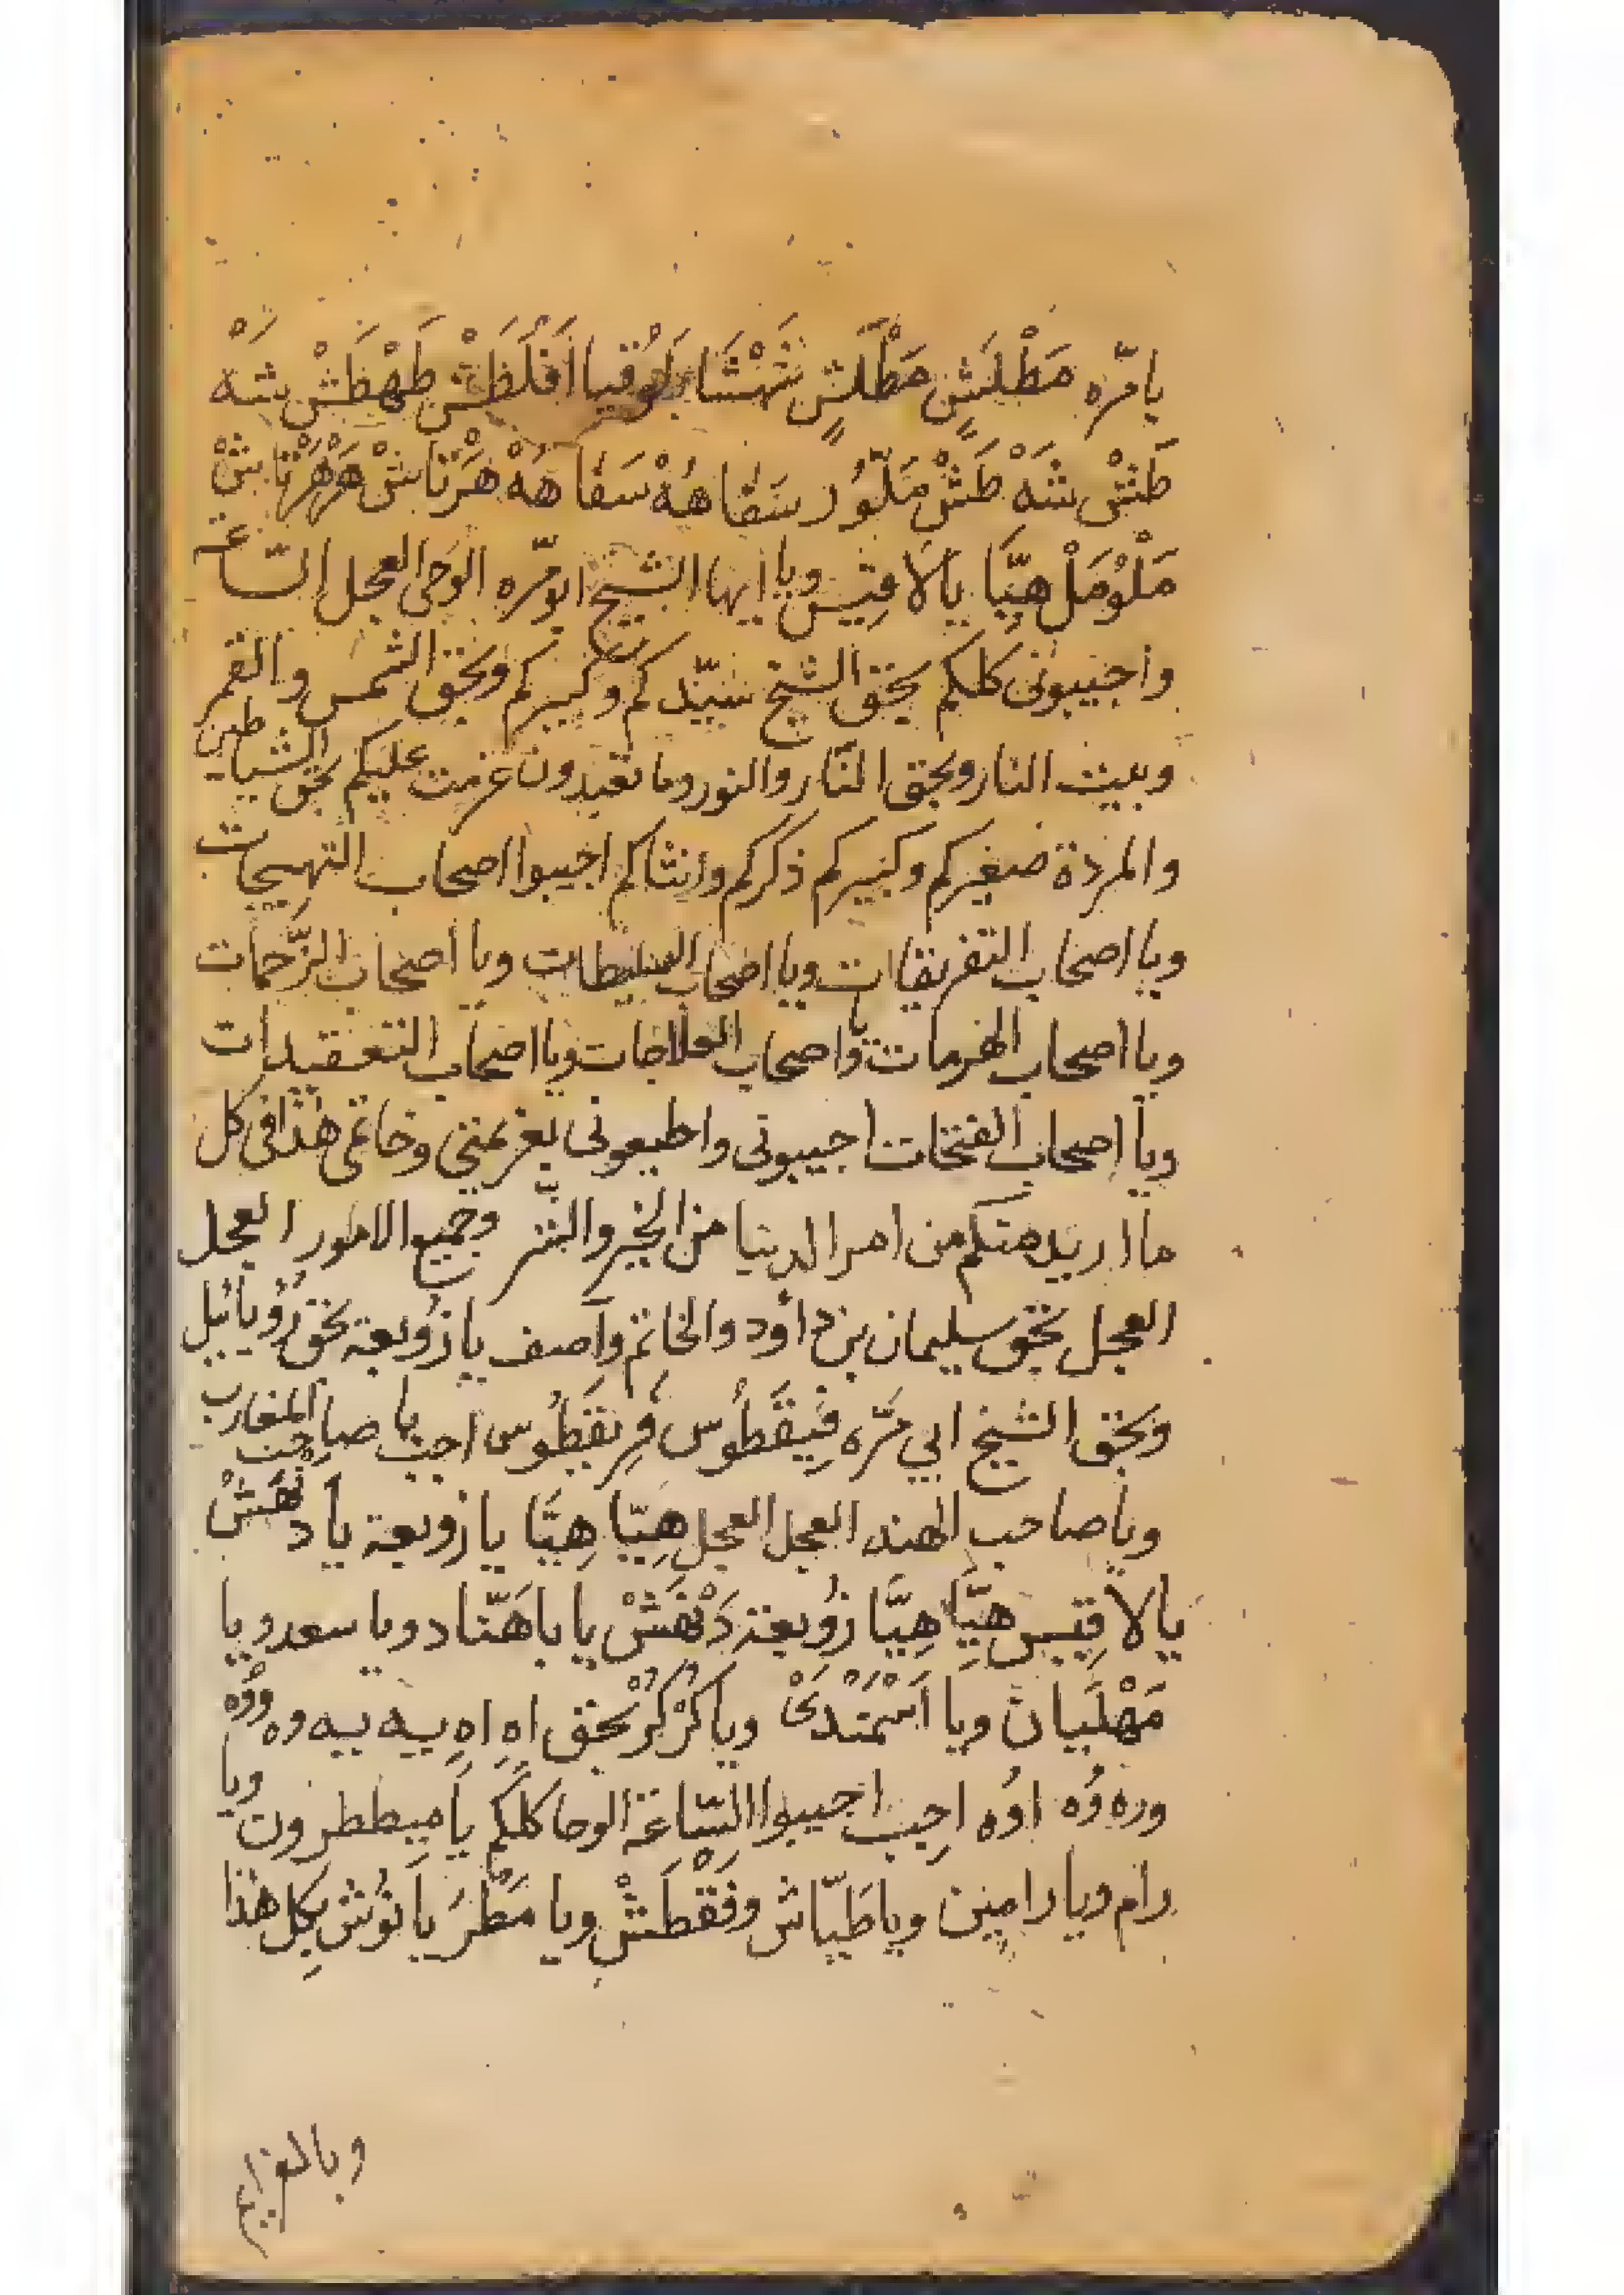 يا مّره مَطْلَشٍ مَطْلَشٍ شَهْشَا بَلُوْقيا اَفْلَظَشْ طَهْطَشْ شَهْ
طَشْ شَهْ طَشْ مَلّوُر سَفَا هُهْ سَفَا هَهْ هَرْتَا شْ هَرْهَرْتَا شْ
مَلْوُمَلْ هِيَّا يالَاقِيْس ويا ايها الشيخ ابومّره الوَحى العجل السّاعة
واجيبونى كلكم بحق الشيخ سيّدكم وكبيركم وبحق الشمس والقمر
وببيت النار وبحق النّار والنور وما تعبدون عزمت عليكم بحق الشياطين
والمردة صغيركم وكبيركم ذكركم وانثاكم اجيبوا اصحاب التهيجات
ويا اصحاب التفريقات ويا اصحاب السليطات ويا اصحاب الرَّجمات
ويا اصحاب الهزمات ويا اصحاب العلاجات ويا اصحاب التعقيدات
ويا اصحاب الفتخات اجيبونى واطيعونى بعزيمتى وخاتمى هذا فى كل
ما اريد منكم من امر الدنيا من الخير والشّر وجميع الامور العجل
العجل بحق سليمان بن داود والخاتم وآصف يا زوبعة بحق رُوُيائيل
وبحق الشيخ ابي مّره فَيقَطُوس فِريقَطُوس اجب يا صاحب المغارب
ويا صاحب الهند العجل العجل هِيّا هِيَّا يا زوبعة يا دَنْهَشْ
يالاقِيس هِيَّا هِيَّا زُوبعة دَنْهَشْ يا باهَنّاد ويا سعد ويا
مَهْلَبيان ويا اَسْمَنْدَىْ ويا كُرْكُرْ بحق اهٍ اهٍ يیه ييه وه ووُه
وره وُه اوُه اجب اجيبوا السّاعَة الوحا كلكم يا ميططرون ويا
رام ويا رامين ويا طَيّاش وفَقْطَشْ ويا مَطْرَ يا نوُش بكل هذا
وبالعزايم